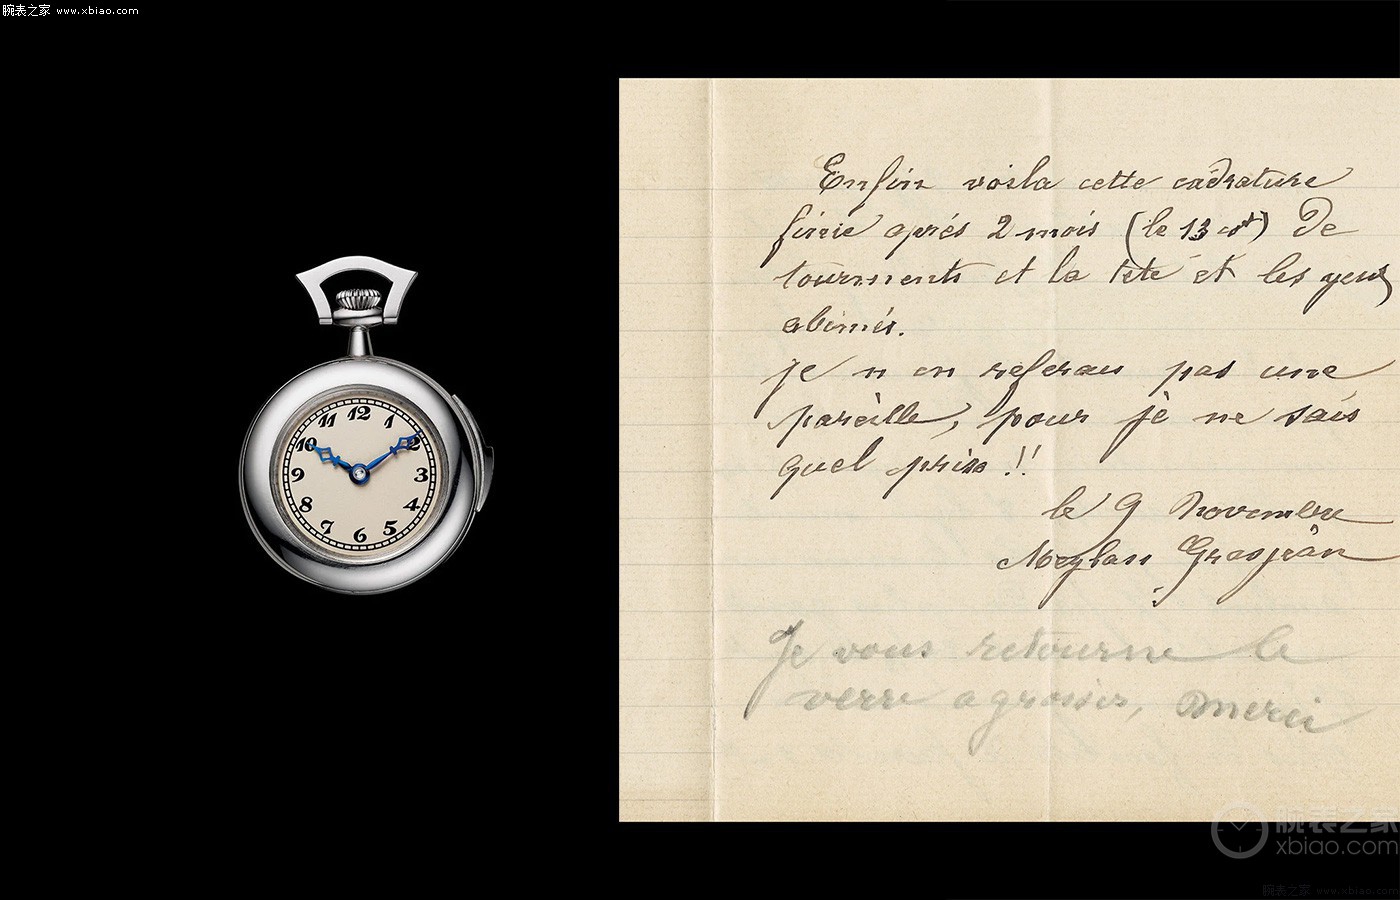 腕表之家 www.xbiao.com
Enfin voila cette cadrature
finie aprés 2 mois (le 13 ct) De
tourments et la tete et les yeux
abimés.
je n en referais pas une
pareille, pour je ne sais
quel prix !!
le 9 Novembre
Meylan Grosjean
Je vous retourne le
verre a grossir, merci
12
1
2
3
4
5
6
7
8
9
10
11
腕表之家
xbiao.com
腕表之家 www.xbiao.com